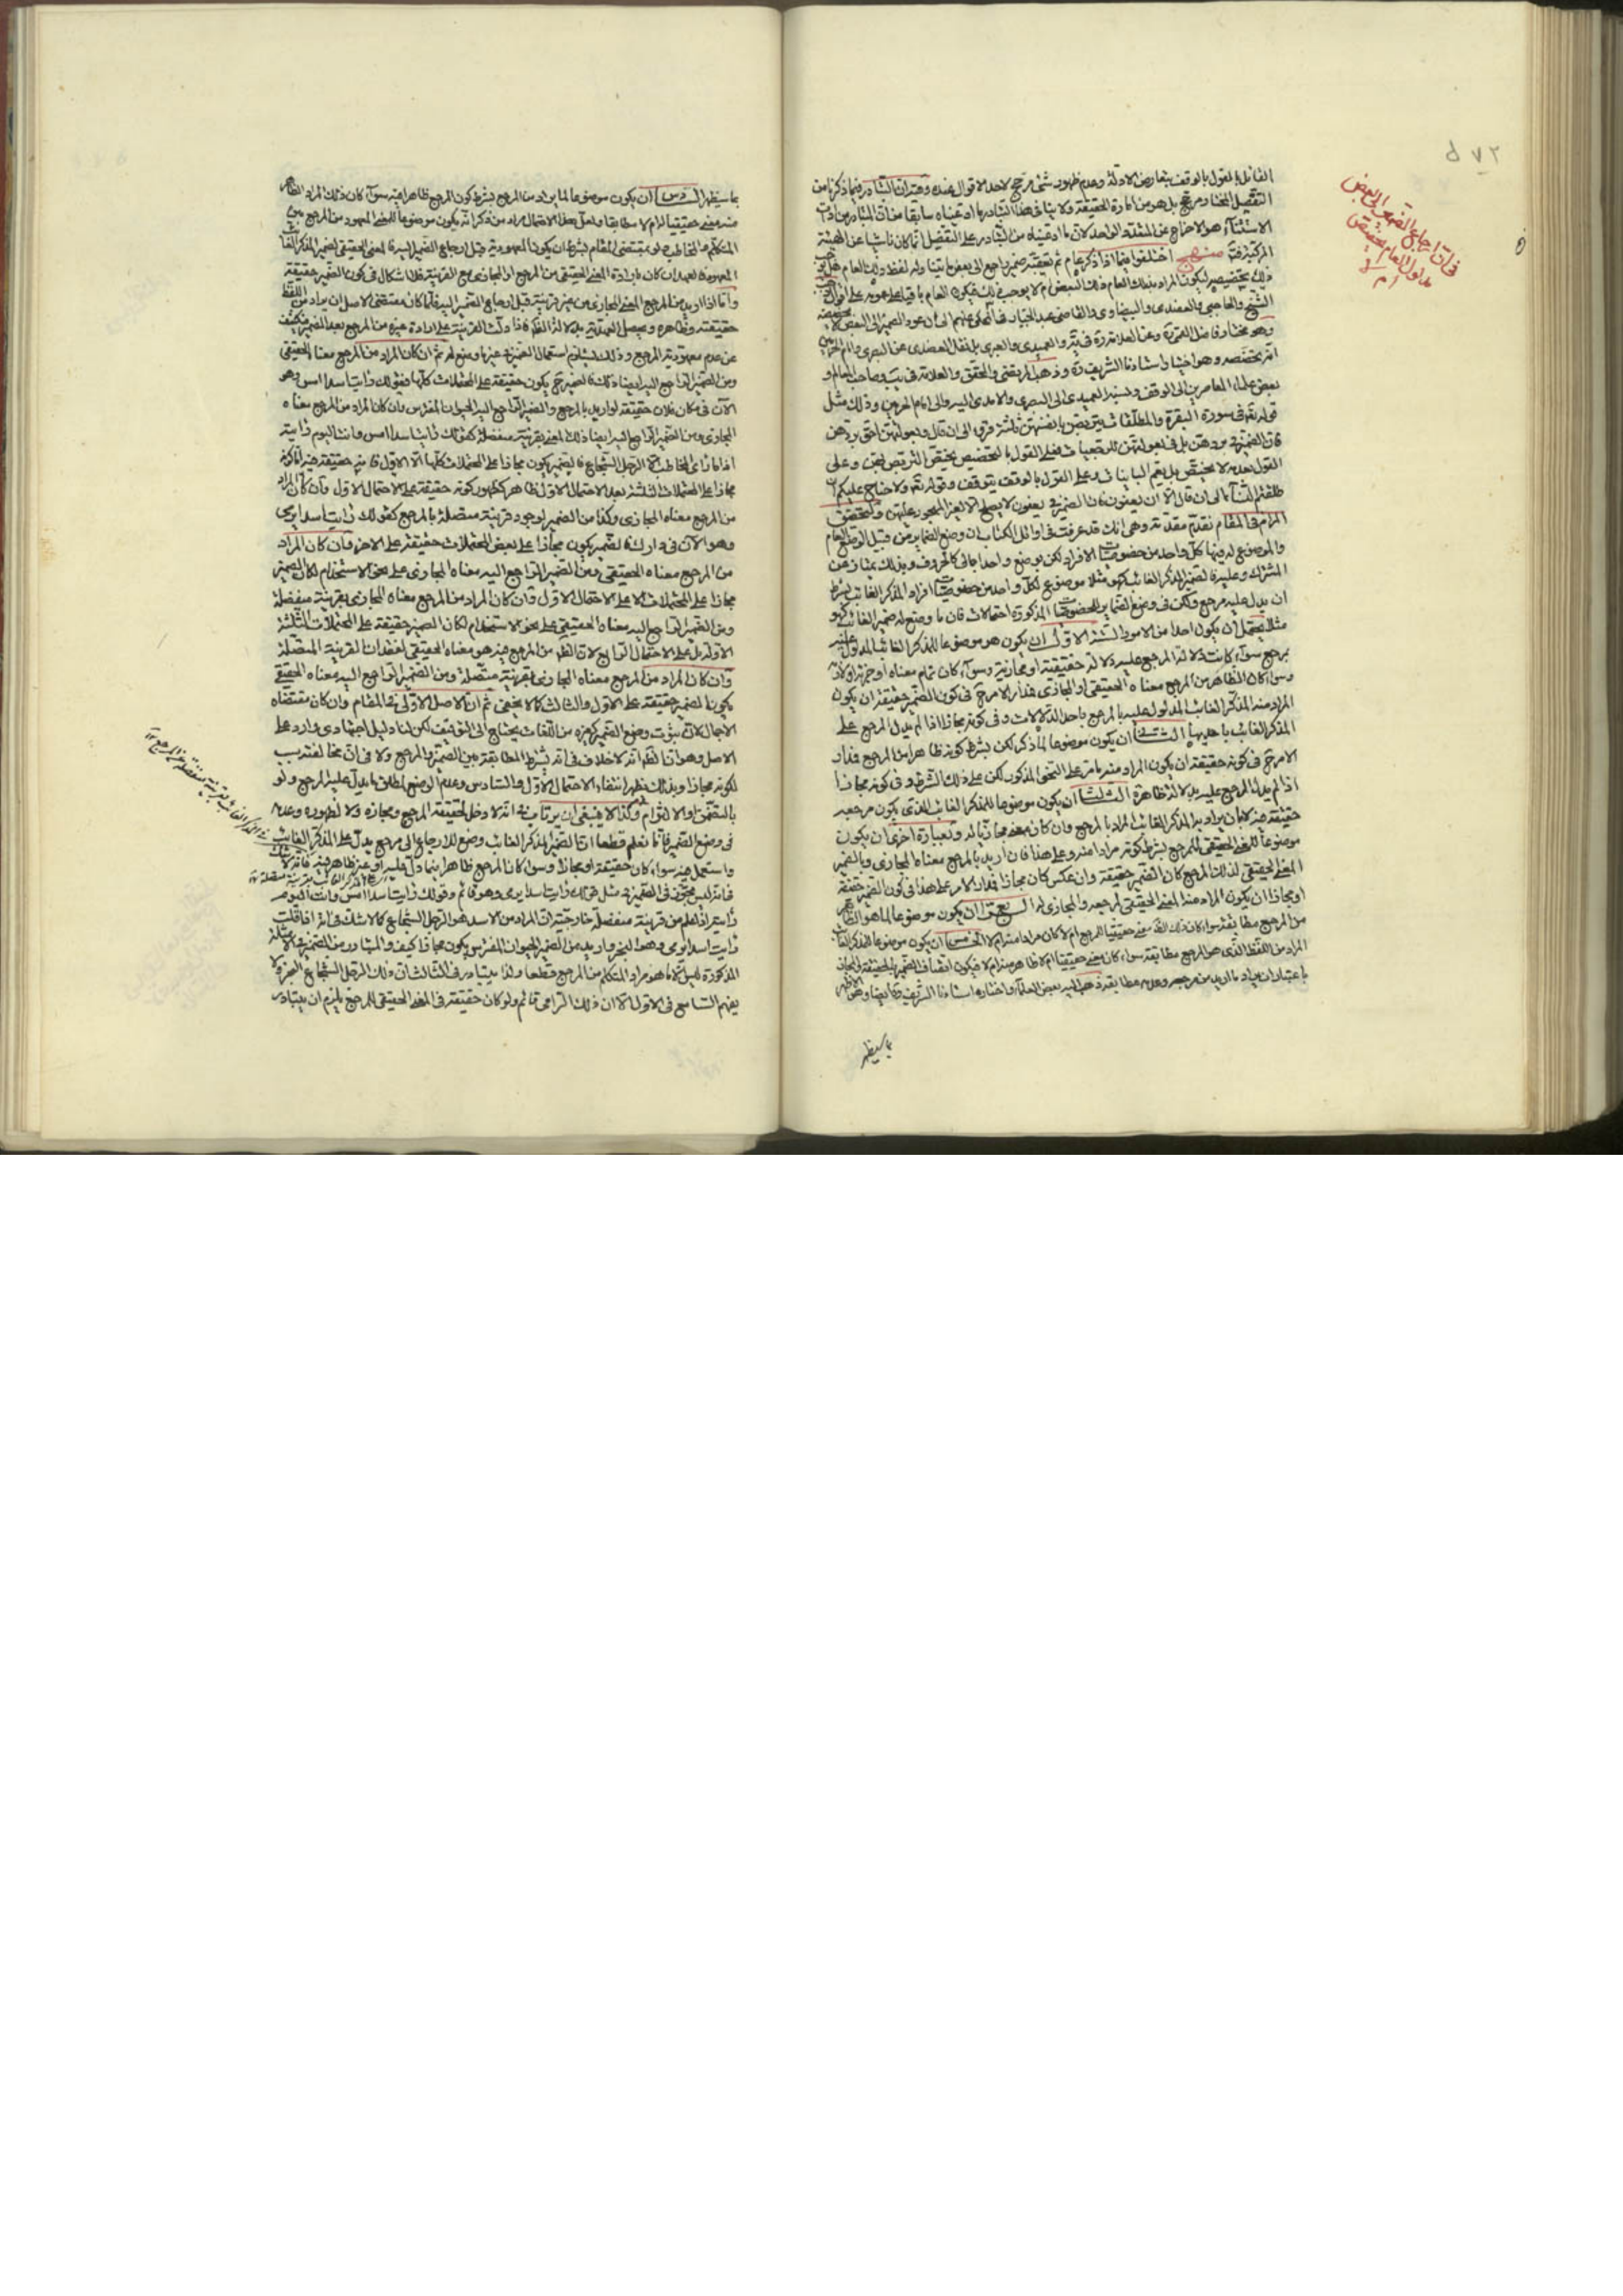 القائل بالقول بالوقف بتعارض الادلة وعدم ظهور شئ مرجح لاحد الاقوال عنده وقد مر ان التبادر فيما ذكرنا من
التفصيل المختار مرجح بل هو من امارة الحقيقة ولا ينافي هذا التبادر ما ادعيناه سابقا من ان المتبادر من ادات
الاستثناء هو الاخراج عن المتعدد الواحد لان ما ادعيناه من التبادر على التفصيل انما كان ناشيا عن الهيئة
التركيبية منهج اختلفوا فيما اذا ذكر عام ثم تعقبه ضمير راجع الى بعض ما يتناوله لفظ ذلك العام هل يوجب
ذلك تخصيصه ليكون المراد بذلك العام ذلك البعض ام لا يوجب ذلك فيكون العام باقيا على عمومه على اقوال
الشيخ والحاجبي والعضدي والبيضاوي والقاضي عبد الجبار فيما حكى عنهم الى ان عود الضمير الى البعض لا يخصصه
وهو مختار فاضل وعن العلامة ره في يه والعميدي والعبري بل نقل العضدي عن البصري وامام الحرمين
انه يخصصه وهو اختيار استادنا الشريف ره وذهب المرتضى والمحقق والعلامة في يب وصاحب المعالم و
بعض علماء المعاصرين الى الوقف ونسبه العميدي الى البصري والامدي اليه والى امام الحرمين وذلك مثل
قوله تعالى في سورة البقرة والمطلقات يتربصن بانفسهن ثلثة قروء الى ان قال وبعولتهن احق بردهن
فان الضمير في بردهن بل في بعولتهن للرجعيات فعلى القول بالتخصيص يختص التربص بهن وعلى
القول بعدمه لا يختص بل يعم البائنات وعلى القول بالوقف يتوقف وقوله تعالى ولا جناح عليكم ان
طلقتم النساء الى ان قال الا ان يعفون فان الضمير في يعفون لا يصلح الا لغير المحجور عليهن وتحقيق
المرام في المقام تقديم مقدمة وهي انك قد عرفت في اوائل الكتاب ان وضع الضماير من قبيل الوضع العام
والموضوع له فيها كل واحد من خصوصيات الافراد لكن بوضع واحد اجمالي كالحروف وبذلك يمتاز عن
المشترك وعليه فالضمير المذكر الغائب كهو مثلا موضوع لكل واحد من خصوصيات افراد المذكر الغائب بشرط
ان يدل عليه مرجع ولكن في وضع الضماير للخصوصيات المذكورة احتمالات فان ما وضع له ضمير الغائب كهو
مثلا يحتمل ان يكون احدا من الامور الستة الاول ان يكون هو موضوعا للمذكر الغائب المدلول عليه
بمرجع سواء كانت دلالة المرجع عليه دلالة حقيقية او مجازية وسواء كان تمام معناه او جزئه او لازمه
وسواء كان الظاهر من المرجع معناه الحقيقي او المجازي فمدار الامر ح في كون الضمير حقيقة ان يكون
المراد منه المذكر الغائب المدلول عليه بالمرجع باحد الدلالات وفي كونه مجازا اذا لم يدل المرجع على
المذكر الغائب باحديها الثاني ان يكون موضوعا لما ذكر لكن بشرط كونه ظاهرا من المرجع فمدار
الامر ح في كونه حقيقة ان يكون المراد منه ما مر على النحو المذكور لكن على ذلك الشرط وفي كونه مجازا
اذا لم يدل المرجع عليه بدلالة ظاهرة الثالث ان يكون موضوعا للمذكر الغائب الذي يكون مرجعه
حقيقة فيه لا بان يراد به المذكر الغائب المراد بالمرجع وان كان معنى مجازيا له وبعبارة اخرى ان يكون
موضوعا للمعنى الحقيقي للمرجع بشرط كونه مرادا منه وعلى هذا فان اريد بالمرجع معناه المجازي وبالضمير
المعنى الحقيقي لذلك المرجع كان الضمير حقيقة وان عكس كان مجازا فمدار الامر على هذا في كون الضمير حقيقة
او مجازا ان يكون المراد منه المعنى الحقيقي لمرجعه والمجازي له الرابع ان يكون موضوعا لما هو الظاهر
من المرجع مطابقة سواء كان ذلك الظاهر معنى حقيقيا للمرجع ام لا كان مرادا منه ام لا الخامس ان يكون موضوعا للمذكر الغائب
المراد من اللفظ الذي هو المرجع مطابقة سواء كان معنى حقيقيا ام لا ظاهرا منه ام لا فيكون اتصاف الضمير بالحقيقة والمجاز
باعتبار ان يراد ما اريد من مرجعه وعدمه مطابقة ذهب اليه بعض العلماء واختاره استادنا الشريف وهو الاظهر
كما سيظهر
في ان ارجاع الضمير الى البعض
مدلول العام تخصيص
ام لا
كما سيظهر السادس ان يكون موضوعا لما يراد من المرجع بشرط كون المرجع ظاهرا فيه سواء كان ذلك المراد الظاهر
منه معنى حقيقيا له ام لا مطابقا ولعل بعد الاحتمال مراد من ذكر انه يكون موضوعا للمعنى المعهود من المرجع بين
المتكلم والمخاطب ولو بمقتضى المقام بشرط ان يكون المعهودية قبل ارجاع الضمير اليه فالمعنى الحقيقي لضمير المذكر الغائب
المعهود فالعهد ان كان بارادة المعنى الحقيقي من المرجع او المجازي مع القرينة فلا اشكال في كون الضمير حقيقة
واما اذا اريد من المرجع المعنى المجازي من غير قرينة قبل ارجاع الضمير اليه فلما كان مقتضى الاصل ان يراد من اللفظ
حقيقته وظاهره ويحصل العهدية بدلالة اللفظ فاذا دلت القرينة على ارادة غيره من المرجع بعد الضمير فيكشف
عن عدم معهودية المرجع وذلك يستلزم استعمال الضمير في غير ما وضع له ثم ان كان المراد من المرجع معناه الحقيقي
ومن الضمير الراجع اليه ايضا ذلك فالضمير ح يكون حقيقة على المحتملات كلها كقولك رايت اسدا امس وهو
الآن في مكان فلان حقيقة لو اريد بالمرجع والضمير الراجع اليه الحيوان المفترس وان كان المراد من المرجع معناه
المجازي ومن الضمير الراجع اليه ايضا ذلك المعنى بقرينة منفصلة كقولك رايت اسدا امس وانت اليوم رايته
اذا ما راى المخاطب الا الرجل الشجاع فالضمير يكون مجازا على المحتملات كلها الا الاول فانه حقيقة فيه اما كونه
مجازا على المحتملات الثلثة بعد الاحتمال الاول فظاهر كظهور كونه حقيقة على الاحتمال الاول وان كان المراد
من المرجع معناه المجازي وكذا من الضمير لوجود قرينة متصلة بالمرجع كقولك رايت اسدا يرمي
وهو الآن في دارك فالضمير يكون مجازا على بعض المحتملات حقيقة على الاخر وان كان المراد
من المرجع معناه الحقيقي ومن الضمير الراجع اليه معناه المجازي على نحو الاستخدام لكان الضمير
مجازا على المحتملات الا على الاحتمال الاول وان كان المراد من المرجع معناه المجازي بقرينة منفصلة
ومن الضمير الراجع اليه معناه الحقيقي على نحو الاستخدام لكان الضمير حقيقة على المحتملات الثلثة
الاولة بل على الاحتمال الرابع لان الظاهر من المرجع فيه هو معناه الحقيقي لفقدان القرينة المتصلة
وان كان المراد من المرجع معناه المجازي بقرينة متصلة ومن الضمير الراجع اليه معناه الحقيقي
يكون الضمير حقيقة على الاول والثالث كما لا يخفى ثم ان الاصل الاولى في المقام وان كان مقتضاه
الاجمال لان ثبوت وضع الضمير كغيره من اللغات يحتاج الى التوقيف لكن لنا دليل اجتهادي وارد على
الاصل وهو انا نعلم انه لا خلاف في انه يشترط المطابقة بين الضمير والمرجع ولا في ان مخالفته سبب
لكونه مجازا وبذلك يظهر انتفاء الاحتمال الاول والسادس وعدم الوضع لمطلق ما يدل عليه المرجع ولو
بالتضمن او الالتزام وكذا لا ينبغي ان يرتاب في انه لا دخل لحقيقة المرجع ومجازه ولا لظهوره وعدمه
في وضع الضمير فانا نعلم قطعا ان الضمير المذكر الغائب وضع للارجاع الى مرجع يدل على المذكر الغائب
واستعمل فيه سواء كان حقيقة او مجازا وسواء كان المرجع ظاهرا فيما دل عليه او غير ظاهر فيه فانه لا شك
فانه ليس بتجوز في الضمير في مثل قولك رايت اسدا يرمي وهو قائم وقولك رايت اسدا امس وانت اليوم
رايته اذا علم من قرينة منفصلة خارجية ان المراد من الاسد هو الرجل الشجاع كما لا شك في انه اذا قلت
رايت اسدا يرمي وهو في البحر واريد من الضمير الحيوان المفترس يكون مجازا كيف والمتبادر من الضمير في الامثلة
المذكورة ليس الا ما هو مراد المتكلم من المرجع قطعا ولذا يتبادر في الثالث ان ذلك الرجل الشجاع في البحر ولا
يفهم السامع في الاول الا ان ذلك الرامي قائم ولو كان حقيقة في المعنى الحقيقي للمرجع يلزم ان يتبادر